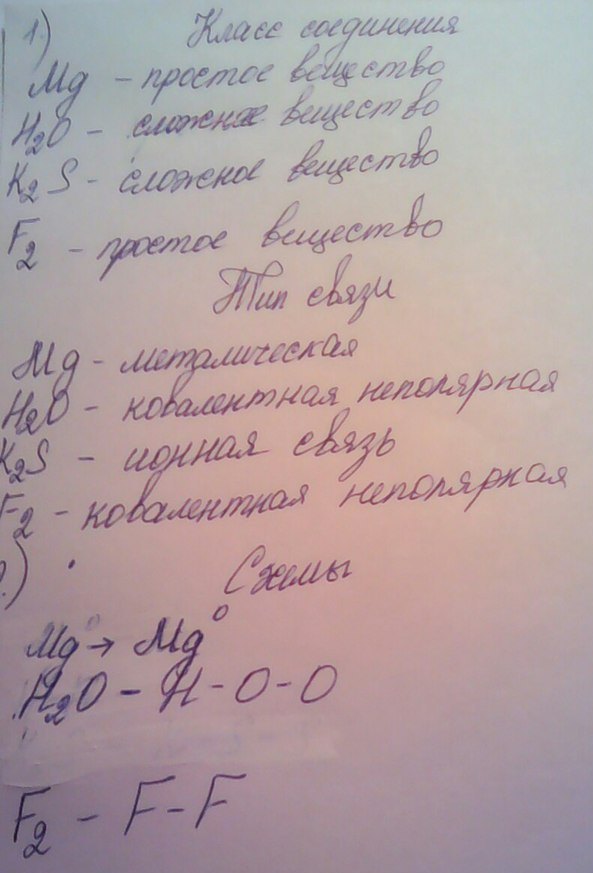 1) Класс соединения
Mg - простое вещество
H2O - сложное вещество
K2S - сложное вещество
F2 - простое вещество
Тип связи
Mg - металическая
H2O - ковалентная неполярная
K2S - ионная связь
F2 - ковалентная неполярная
) Схемы
Mg⁰ → Mg⁰
H2O - H - O - O
F2 - F - F